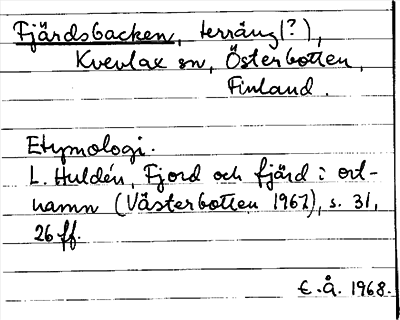 Fjärdsbacken, terräng(?),
Kvevlax sn, Österbotten,
Finland.
Etymologi.
L. Huldén, Fjord och fjärd i ort-
namn (Västerbotten 1967), s. 31,
26 ff.
E.Å. 1968.